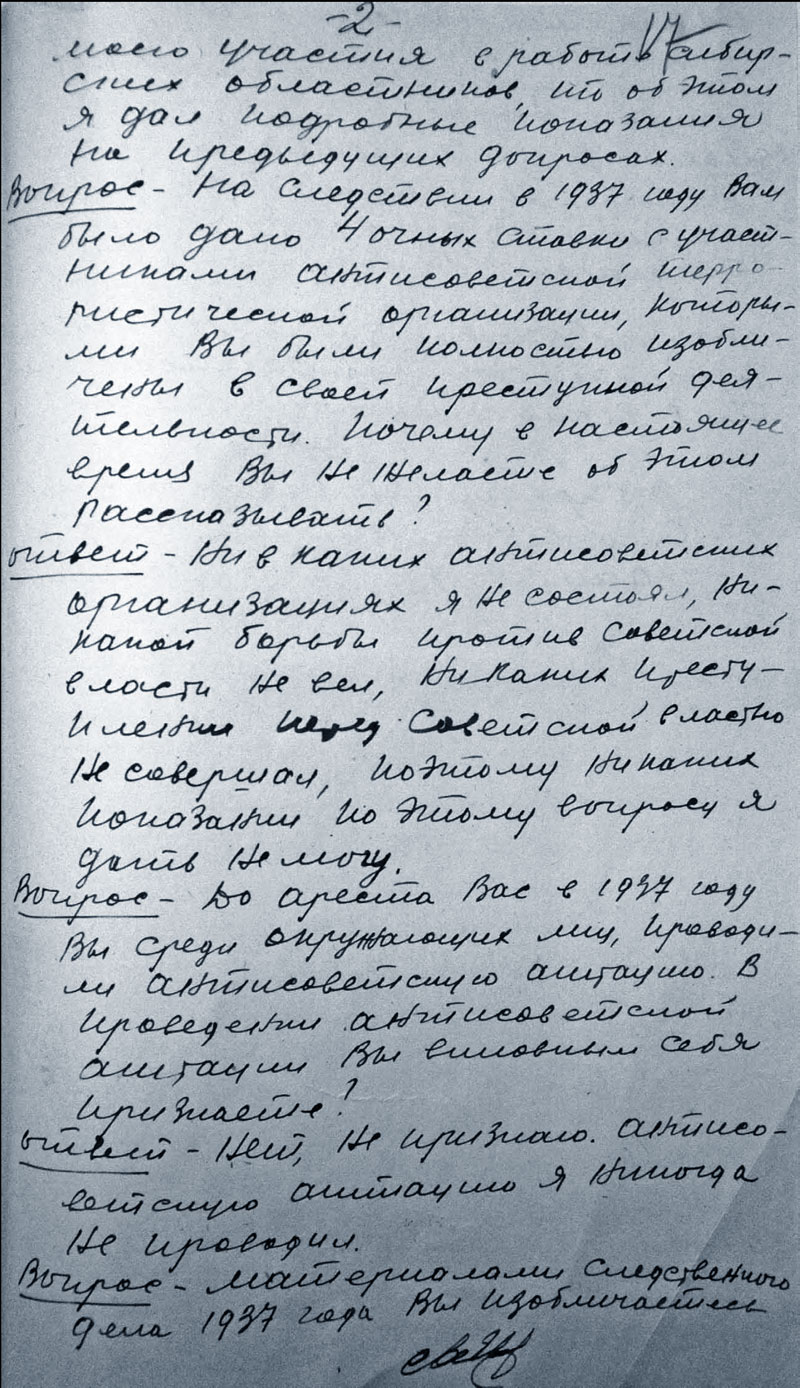 -2-
17
моего участия в работе сибир-
ских областников, то об этом
я дал подробные показания
на предыдущих допросах.
Вопрос - На следствии в 1937 году Вам
было дано 4 очных ставки с участ-
никами антисоветской терро-
ристической организации, которы-
ми Вы были полностью изобли-
чены в своей преступной дея-
тельности. Почему в настоящее
время Вы не желаете об этом
рассказывать?
Ответ - Ни в каких антисоветских
организациях я не состоял, ни-
какой борьбы против Советской
власти не вел, никаких престу-
плений перед Советской властью
не совершал, поэтому никаких
показаний по этому вопросу я
дать не могу.
Вопрос - До ареста Вас в 1937 году
Вы среди окружающих лиц, проводи-
ли антисоветскую агитацию. В
проведении антисоветской
агитации Вы виновным себя
признаете?
Ответ - Нет, не признаю. Антисо-
ветскую агитацию я никогда
не проводил.
Вопрос - Материалами следственного
дела 1937 года Вы изобличаетесь